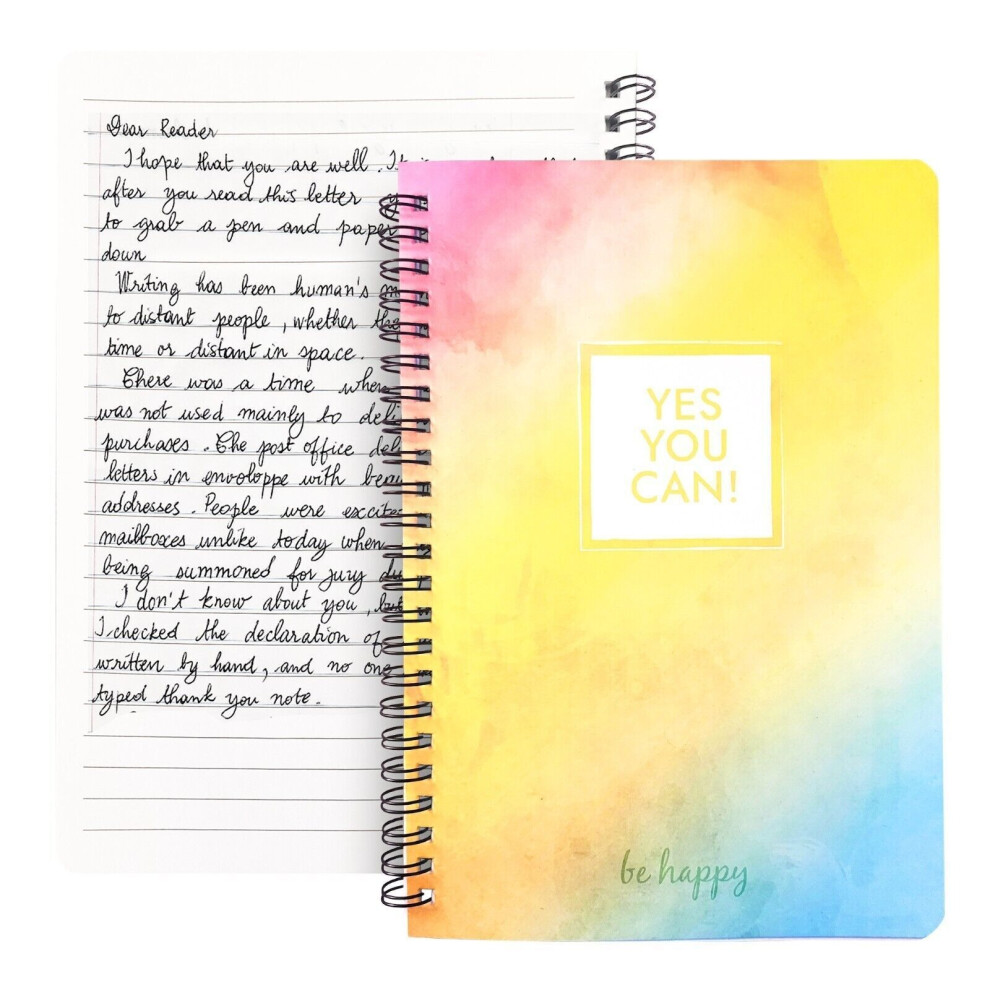 Dear Reader
I hope that you are well. It
after you read this letter
to grab a pen and paper
down
Writing has been human's
to distant people, whether the
time or distant in space.
There was a time when
was not used mainly to
purchases. The post office
letters in enveloppe with
addresses. People were
mailboxes unlike today when
being summoned for jury
I don't know about you,
I checked the declaration of
written by hand, and no one
typed thank you note.
YES
YOU
CAN!
be happy